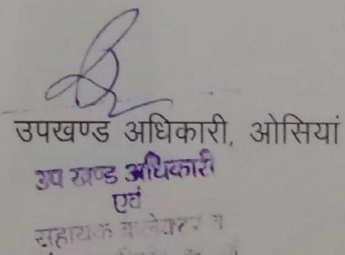 उपखण्ड अधिकारी, ओसियां
उप खण्ड अधिकारी
एवं
सहायक कलेक्टर व